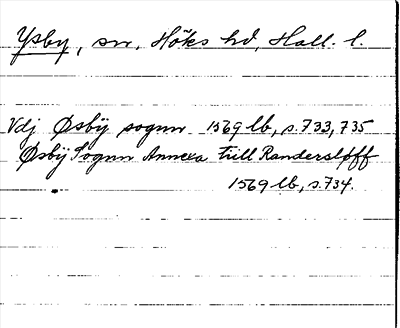 Ysby, sn, Höks hd, Hall. l.
Vdj Øsbÿ sognn 1569 lb, s. 733, 735
Øsbÿ Sognn Annexa till Randersløff
1569 lb, s. 734.